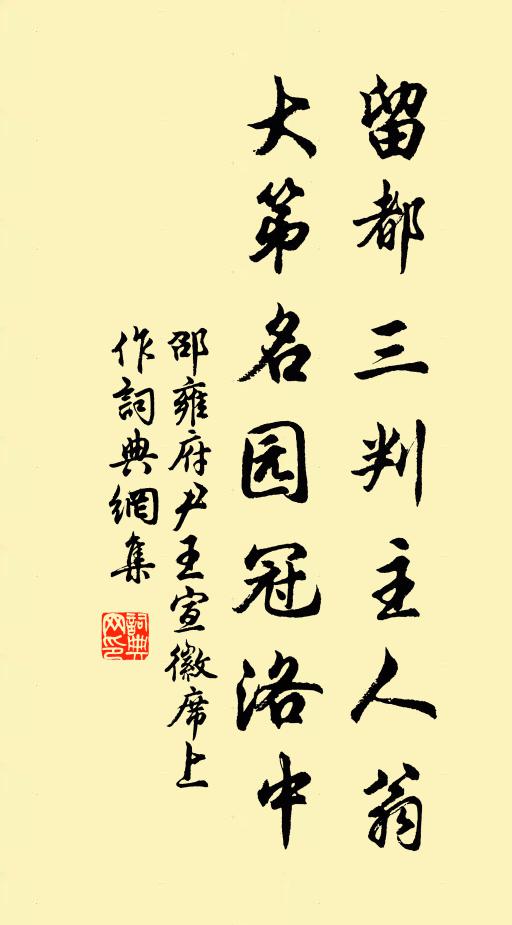 留都三判主人翁
大第名园冠洛中
邵雍府尹王宣徽席上
作詞典網集
詞典网印